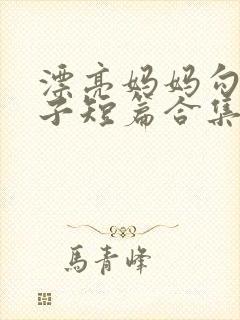 漂亮妈妈勾
子短篇合集
馬青峰